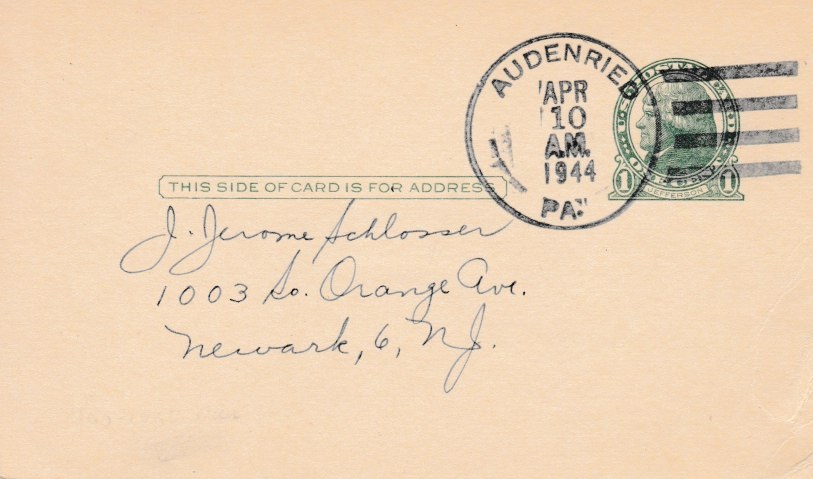 AUDENRIED
APR
10
A.M.
1944
PA.
1 JEFFERSON 1
THIS SIDE OF CARD IS FOR ADDRESS
J. Jerome Schlosser
1003 So. Orange Ave.
Newark, 6, N.J.